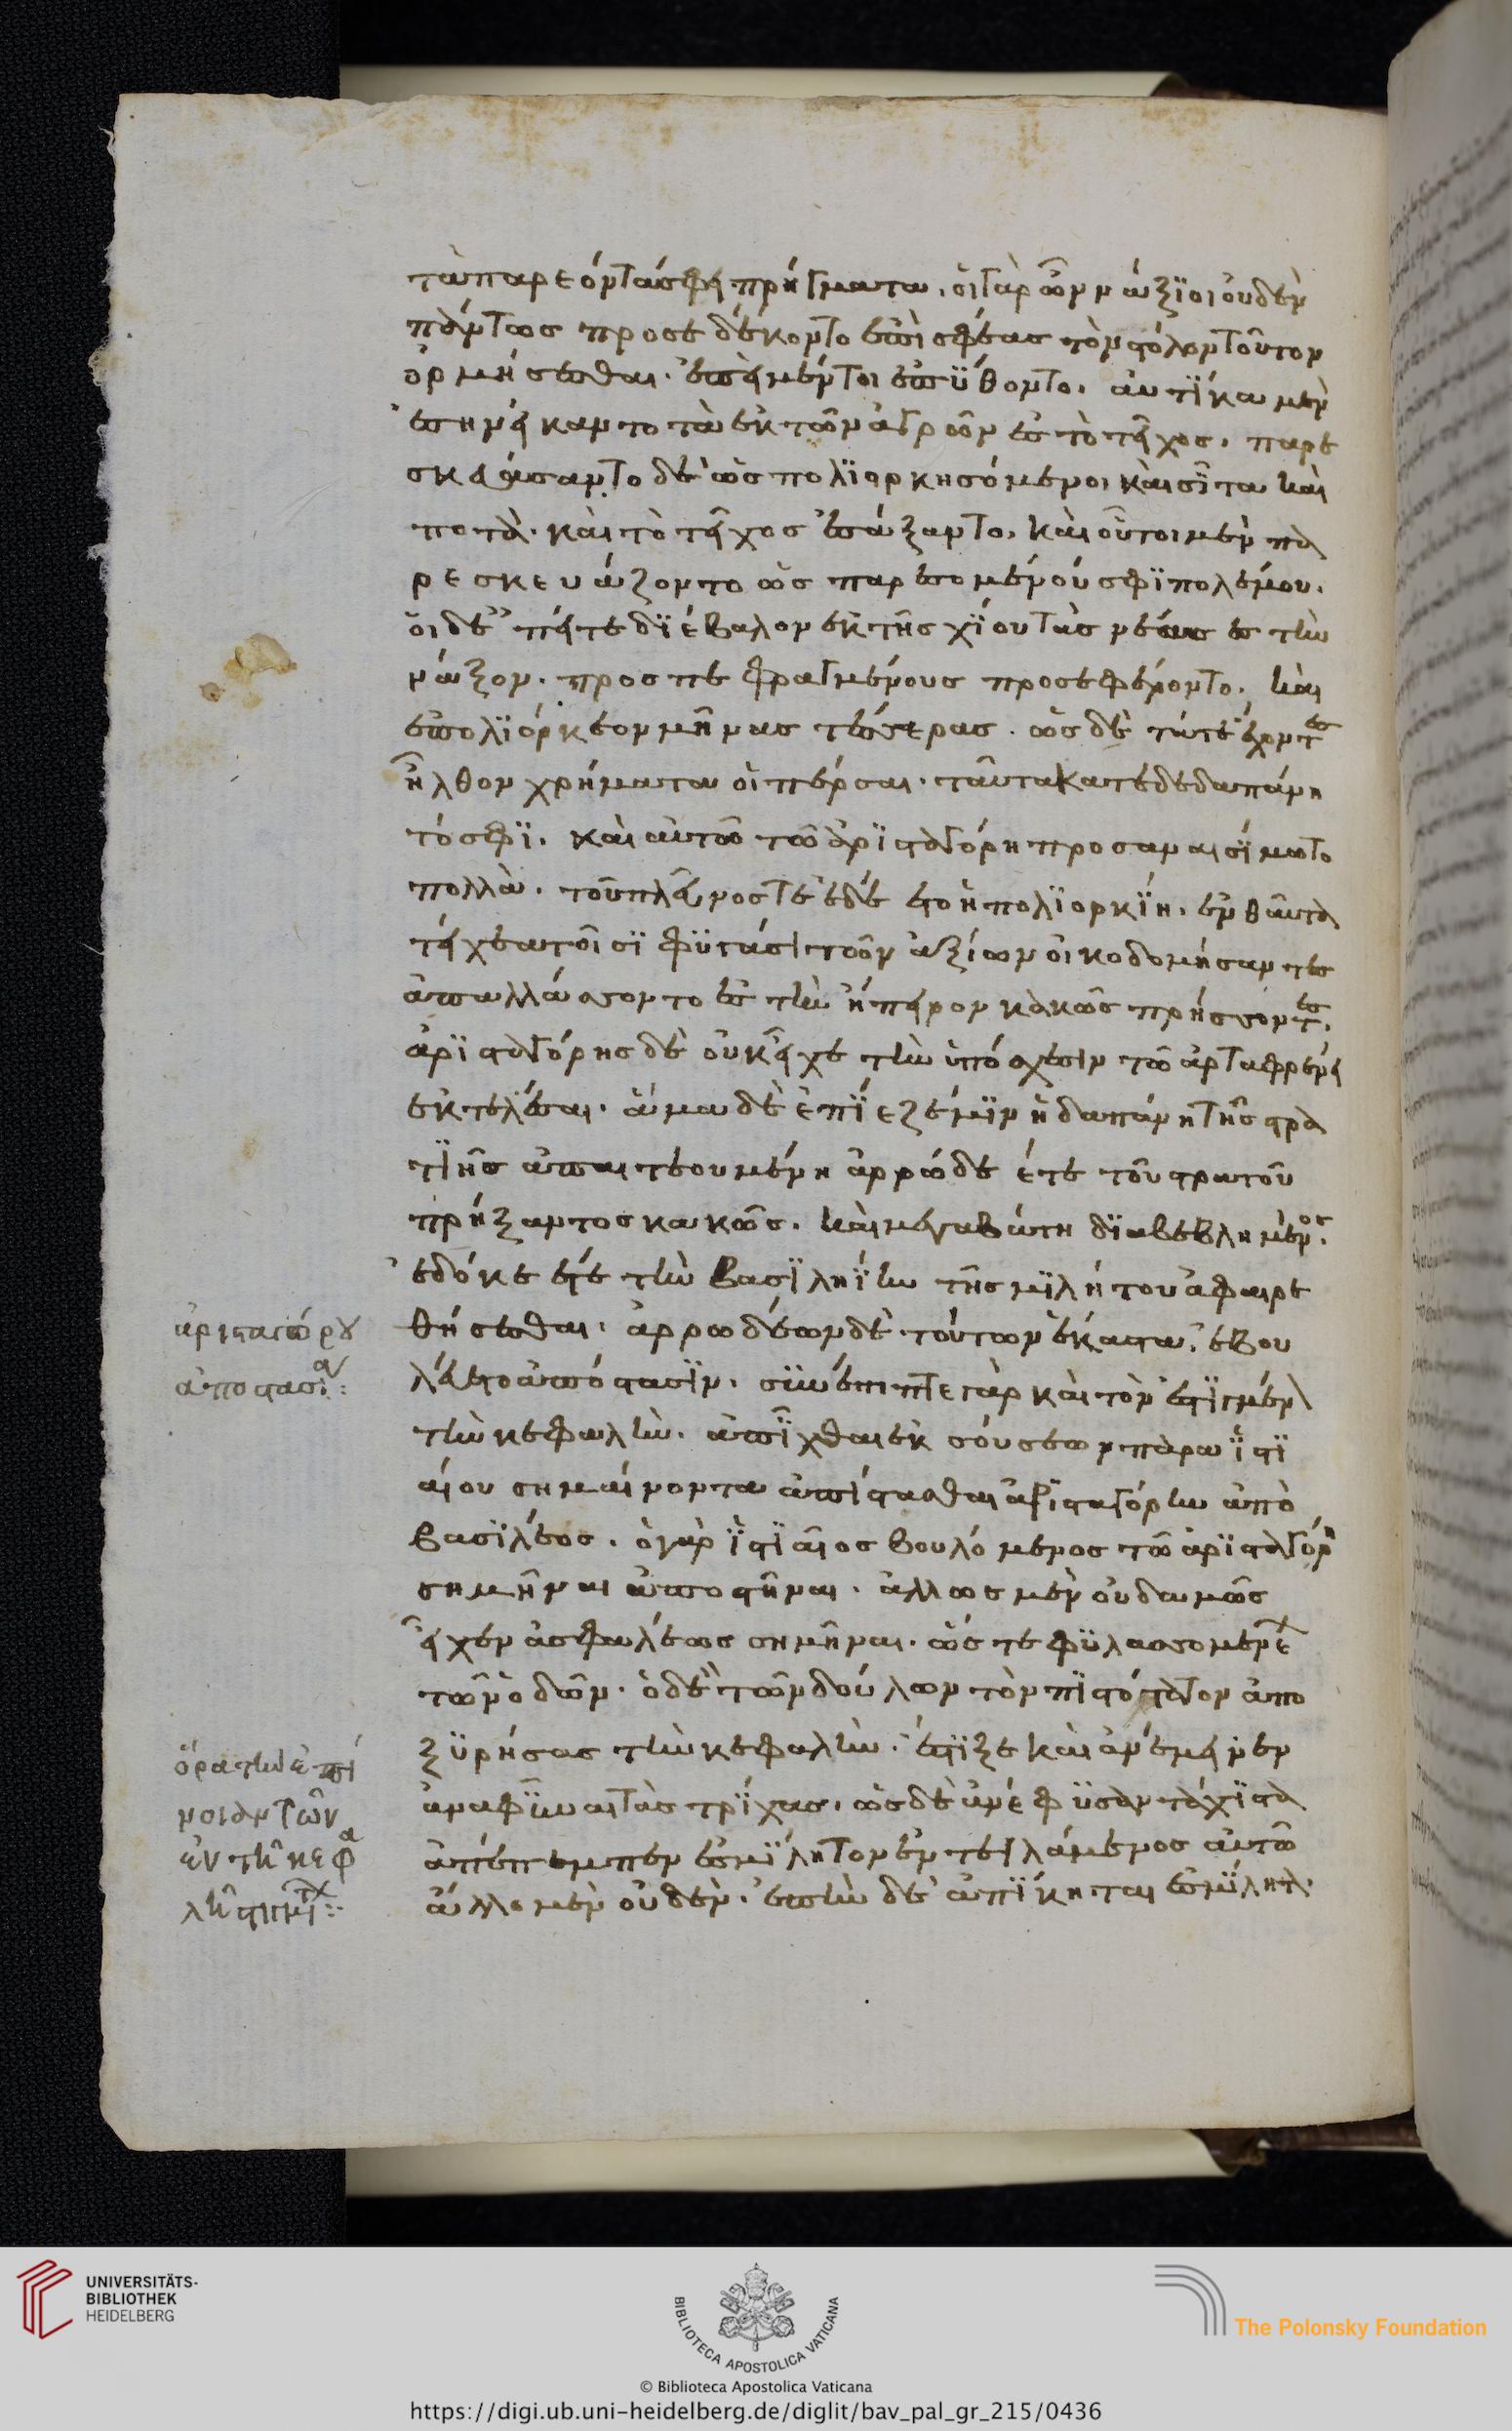 τὰ παρεόντα σφι πρήγματα. οἱ γὰρ ὦν νάξϊοι οὐδὲν
πάντως προσεδέκοντο ἐπὶ σφέας τὸν στόλον τοῦτον
ὁρμήσεσθαι. ἐπεὶ μέντοι ἐπΰθοντο. αὐτΐκα μὲν
ἐσηνείκαντο τὰ ἐκ τῶν ἀγρῶν ἐς τὸ τεῖχος. παρε
σκευάσαντο δὲ ὡς πολϊορκησόμενοι καὶ σῖτα καὶ
ποτὰ. καὶ τὸ τεῖχος ἐσάξαντο. καὶ οὗτοι μὲν πα
ρεσκευάζοντο ὡς παρεσομένου σφϊ πολέμου.
οἱ δὲ ἐπείτε δϊέβαλον ἐκ τῆς χΐου τὰς νέας ἐς τὴν
νάξον. προς πεφραγμένους προσεφέροντο. καὶ
ἐπολϊόρκεον μῆνας τέσσερας. ὡς δὲ τάτε ἔχοντες
ἦλθον χρήματα οἱ πέρσαι. ταῦτα κατεδεδαπάνη
τό σφϊ. καὶ αὐτῶ τῶ ἀρϊσταγόρη προσαναισΐμωτο
πολλὰ. τοῦ πλεῦνος τε ἐδέετο ἡ πολϊορκΐη. ἐνθαῦτα
τείχεα τοῖσϊ φϋγάσι τῶν ναξίων οἰκοδομήσαντες
ἀπαλλάσσοντο ἐς τὴν ἤπειρον κακῶς πρήσσοντες.
ἀρϊσταγόρης δὲ οὐκ εἶχε τὴν ὑπόσχεσιν τῶ ἀρταφρένεϊ
ἐκτελέσαι. ἅμα δὲ ἐπΐεζέ μϊν ἡ δαπάνη τῆς στρα
τϊῆς ἀπαιτεουμένη ἀρρώδεέ τε τοῦ στρατοῦ
πρήξαντος κακῶς. καὶ μεγαβάτη δϊαβεβλημένος.
ἐδόκεέ τε τὴν βασϊληΐην τῆς μϊλήτου ἀφαιρε
θήσεσθαι. ἀρρωδέων δὲ τούτων ἕκαστα. ἐβου
λεύετο ἀπόστασϊν. συνέπιπτε γὰρ καὶ τὸν ἐστϊγμένον
τὴν κεφαλὴν. ἀπῖχθαι ἐκ σούσεων παρα ϊστϊ
αίου σημαίνοντα ἀπίστασθαι ἀρϊσταγόρην ἀπὸ
βασϊλέος. ὁ γὰρ ϊστϊαῖος βουλόμενος τῶ ἀρϊσταγόρη
σημῆναι ἀποστῆναι. ἄλλως μὲν οὐδαμῶς
εἶχεν ἀσφαλέως σημῆναι. ὥστε φϋλασσομενέ
τῶν ὁδῶν. ὁ δὲ τῶν δούλων τὸν πϊστότατον ἀπο
ξϋρήσας τὴν κεφαλὴν. ἔστϊξε καὶ ἀνέμεινεν
ἀναφῦναι τὰς τρΐχας. ὡς δὲ ἀνέφϋσαν τάχϊστα
ἀπέπεμπεν ἐς μΐλητον ἐντειλάμενος αὐτῶ
ἄλλο μὲν οὐδὲν. ἐπεὰν δὲ ἀπΐκηται ἐς μΐλητον.
ἀρισταγόρου
ἀποστασία:
ὅρα τὴν ἐπί
νοιαν τῶν
ἐν τῆ κεφα
λῆ στιγμάτων:
UNIVERSITÄTS-
BIBLIOTHEK
HEIDELBERG
BIBLIOTECA APOSTOLICA VATICANA
The Polonsky Foundation
© Biblioteca Apostolica Vaticana
https://digi.ub.uni-heidelberg.de/diglit/bav_pal_gr_215/0436